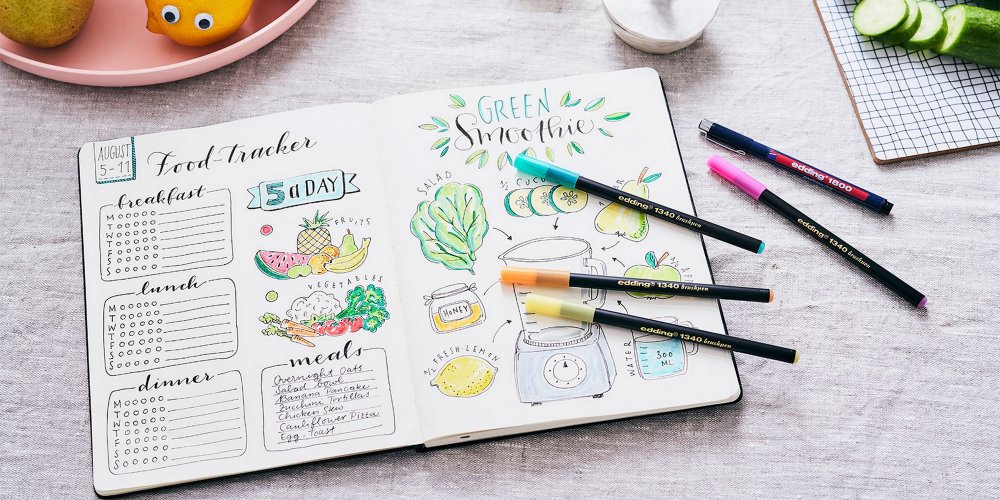 AUGUST
5-11
Food-Tracker
breakfast
M
T
W
T
F
S
lunch
M
T
W
T
F
S
dinner
M
T
W
T
F
S
5 a DAY
FRUITS
VEGETABLES
meals
Overnight Oats
Salad bowl
Banana Pancake
Zucchini Tortillas
Chicken Stew
Cauliflower Pizza
Egg-Toast
GREEN
Smoothie
SALAD
½ CUCU
HONEY
½ FRESH LEMON
WATER
300
ML
edding 1340 brushpen
edding 1340 brushpen
edding 1340 brushpen
edding 1800
edding 1340 brushpen